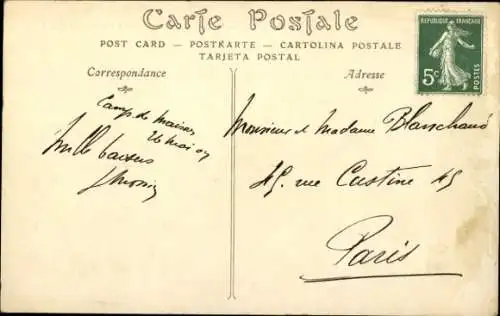 Carte Postale
POST CARD — POSTKARTE — CARTOLINA POSTALE
TARJETA POSTAL
REPUBLIQUE FRANÇAISE
5c
POSTES
Correspondance
Camp de
26 mai 07
Mille baisers
Adresse
Monsieur et Madame Blanchard
45. rue Custine 45
Paris